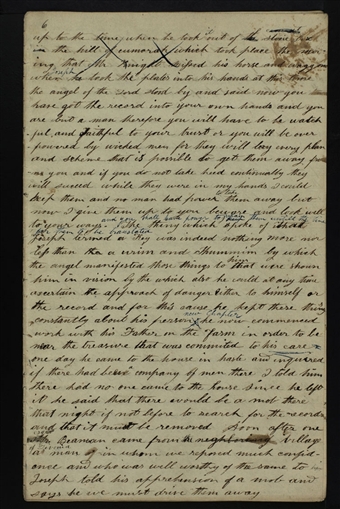 6
up to the time when he took out of the stone box
in the hill of cumorah which took place the
ing that Mr Knight his horse and waggon
when he took the plates into his hands at this time
the angel of the Lord stood by and said now you
have got the record into your own hands and you
are but a man therefore you will have to be watch
ful and faithful to your trust or you will be over
powered by wicked men for they will lay every plan
and scheme that is possible to get them away from
you and if you do not take heed continually they
will succeed while they were in my hands I could
keep them and no man had power to take them away but
now I give them up to you beware and look well
to your ways
The thing which spoke of that
Joseph termed a Key was indeed nothing more nor
less than the urim and Thummim by which
the angel manifested those things to him that were shown
him in vision by the which also he could at any time
ascertain the approach of danger either to himself or
the record and for this cause he kept these things
constantly about his person
new Chapter
he now commenced
work with his Father on the farm in order to be
near the treasure that was committed to his care
one day he came to the house in haste and inquired
if there had been a company of men there I told him
there had no one came to the house since he left
it he said that there would be a mob there
that night if not before to search for the record
and that it must be removed Soon after one
Beaman came from the village
of Livonia
a man in whom we reposed much confid
ence and who was well worthy of the same
Joseph told his apprehension of a mob and
says he we must drive them away